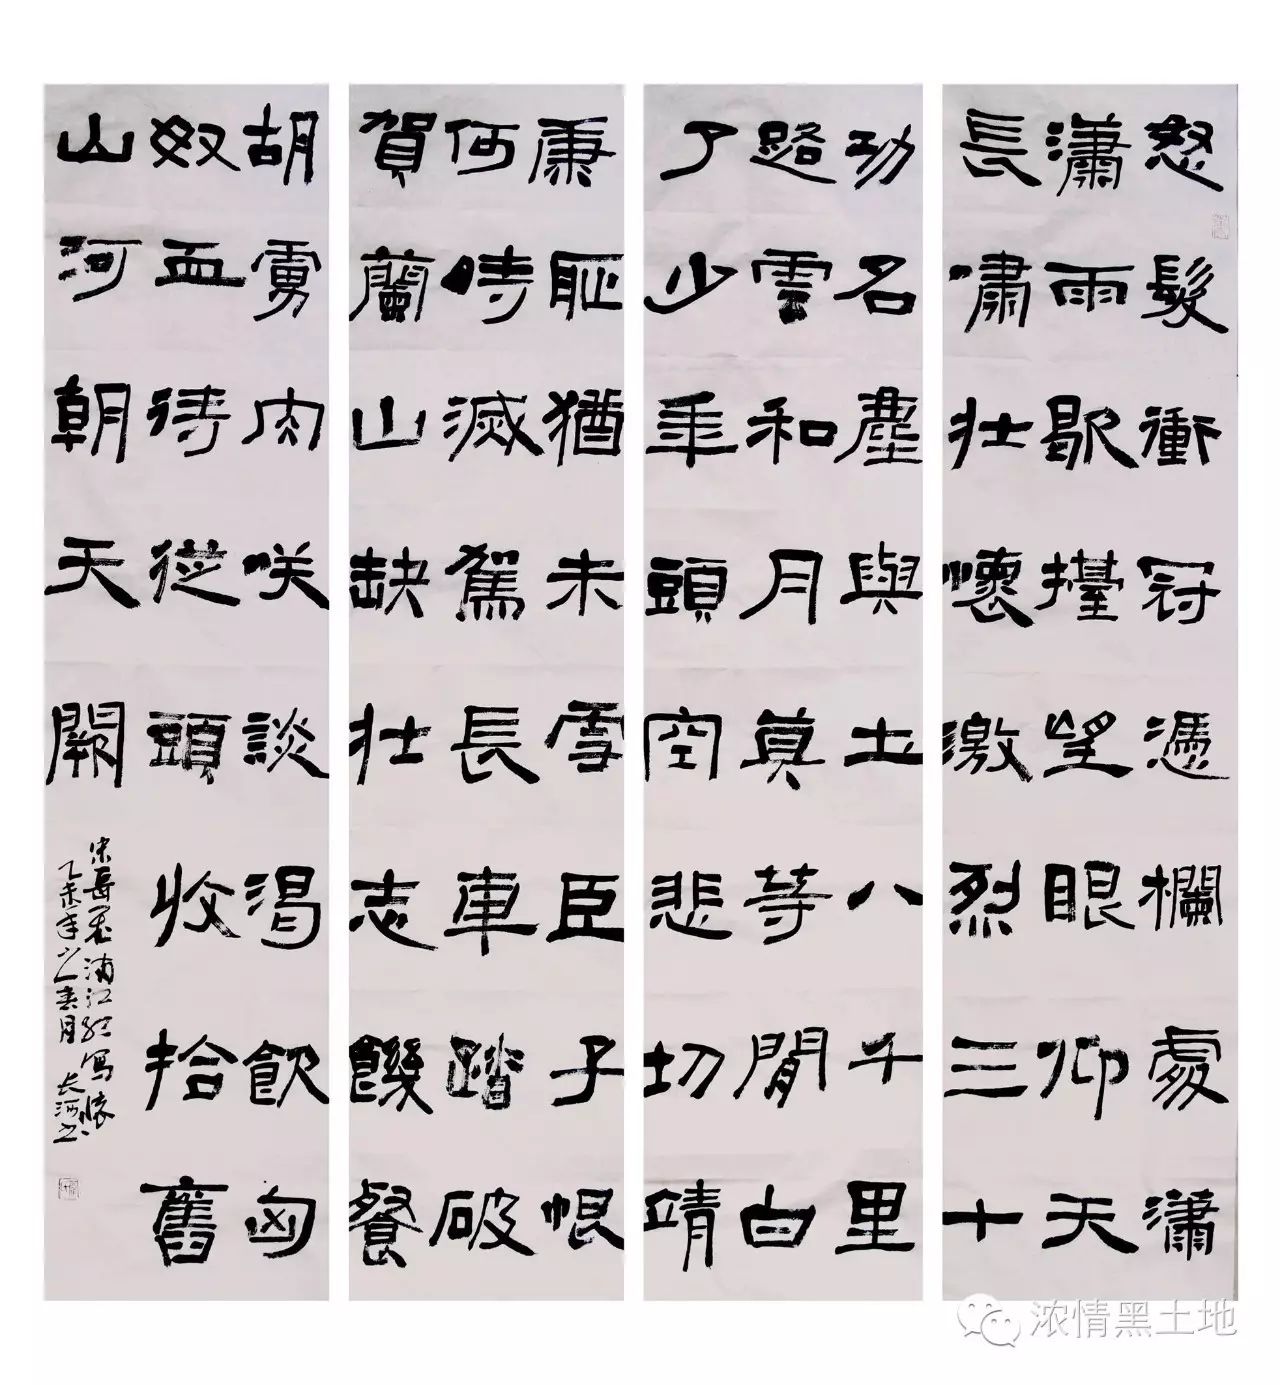 怒髮衝冠憑欄處瀟
瀟雨歇擡望眼仰天
長嘯壯懷激烈三十
功名塵與土八千里
路雲和月莫等閒白
了少年頭空悲切靖
康恥猶未雪臣子恨
何時滅駕長車踏破
賀蘭山缺壯志饑餐
胡虜肉咲談渴飲匈
奴血待從頭收拾舊
山河朝天闕
宋岳飛滿江紅寫懷
乙未年之春月 长河书
浓情黑土地